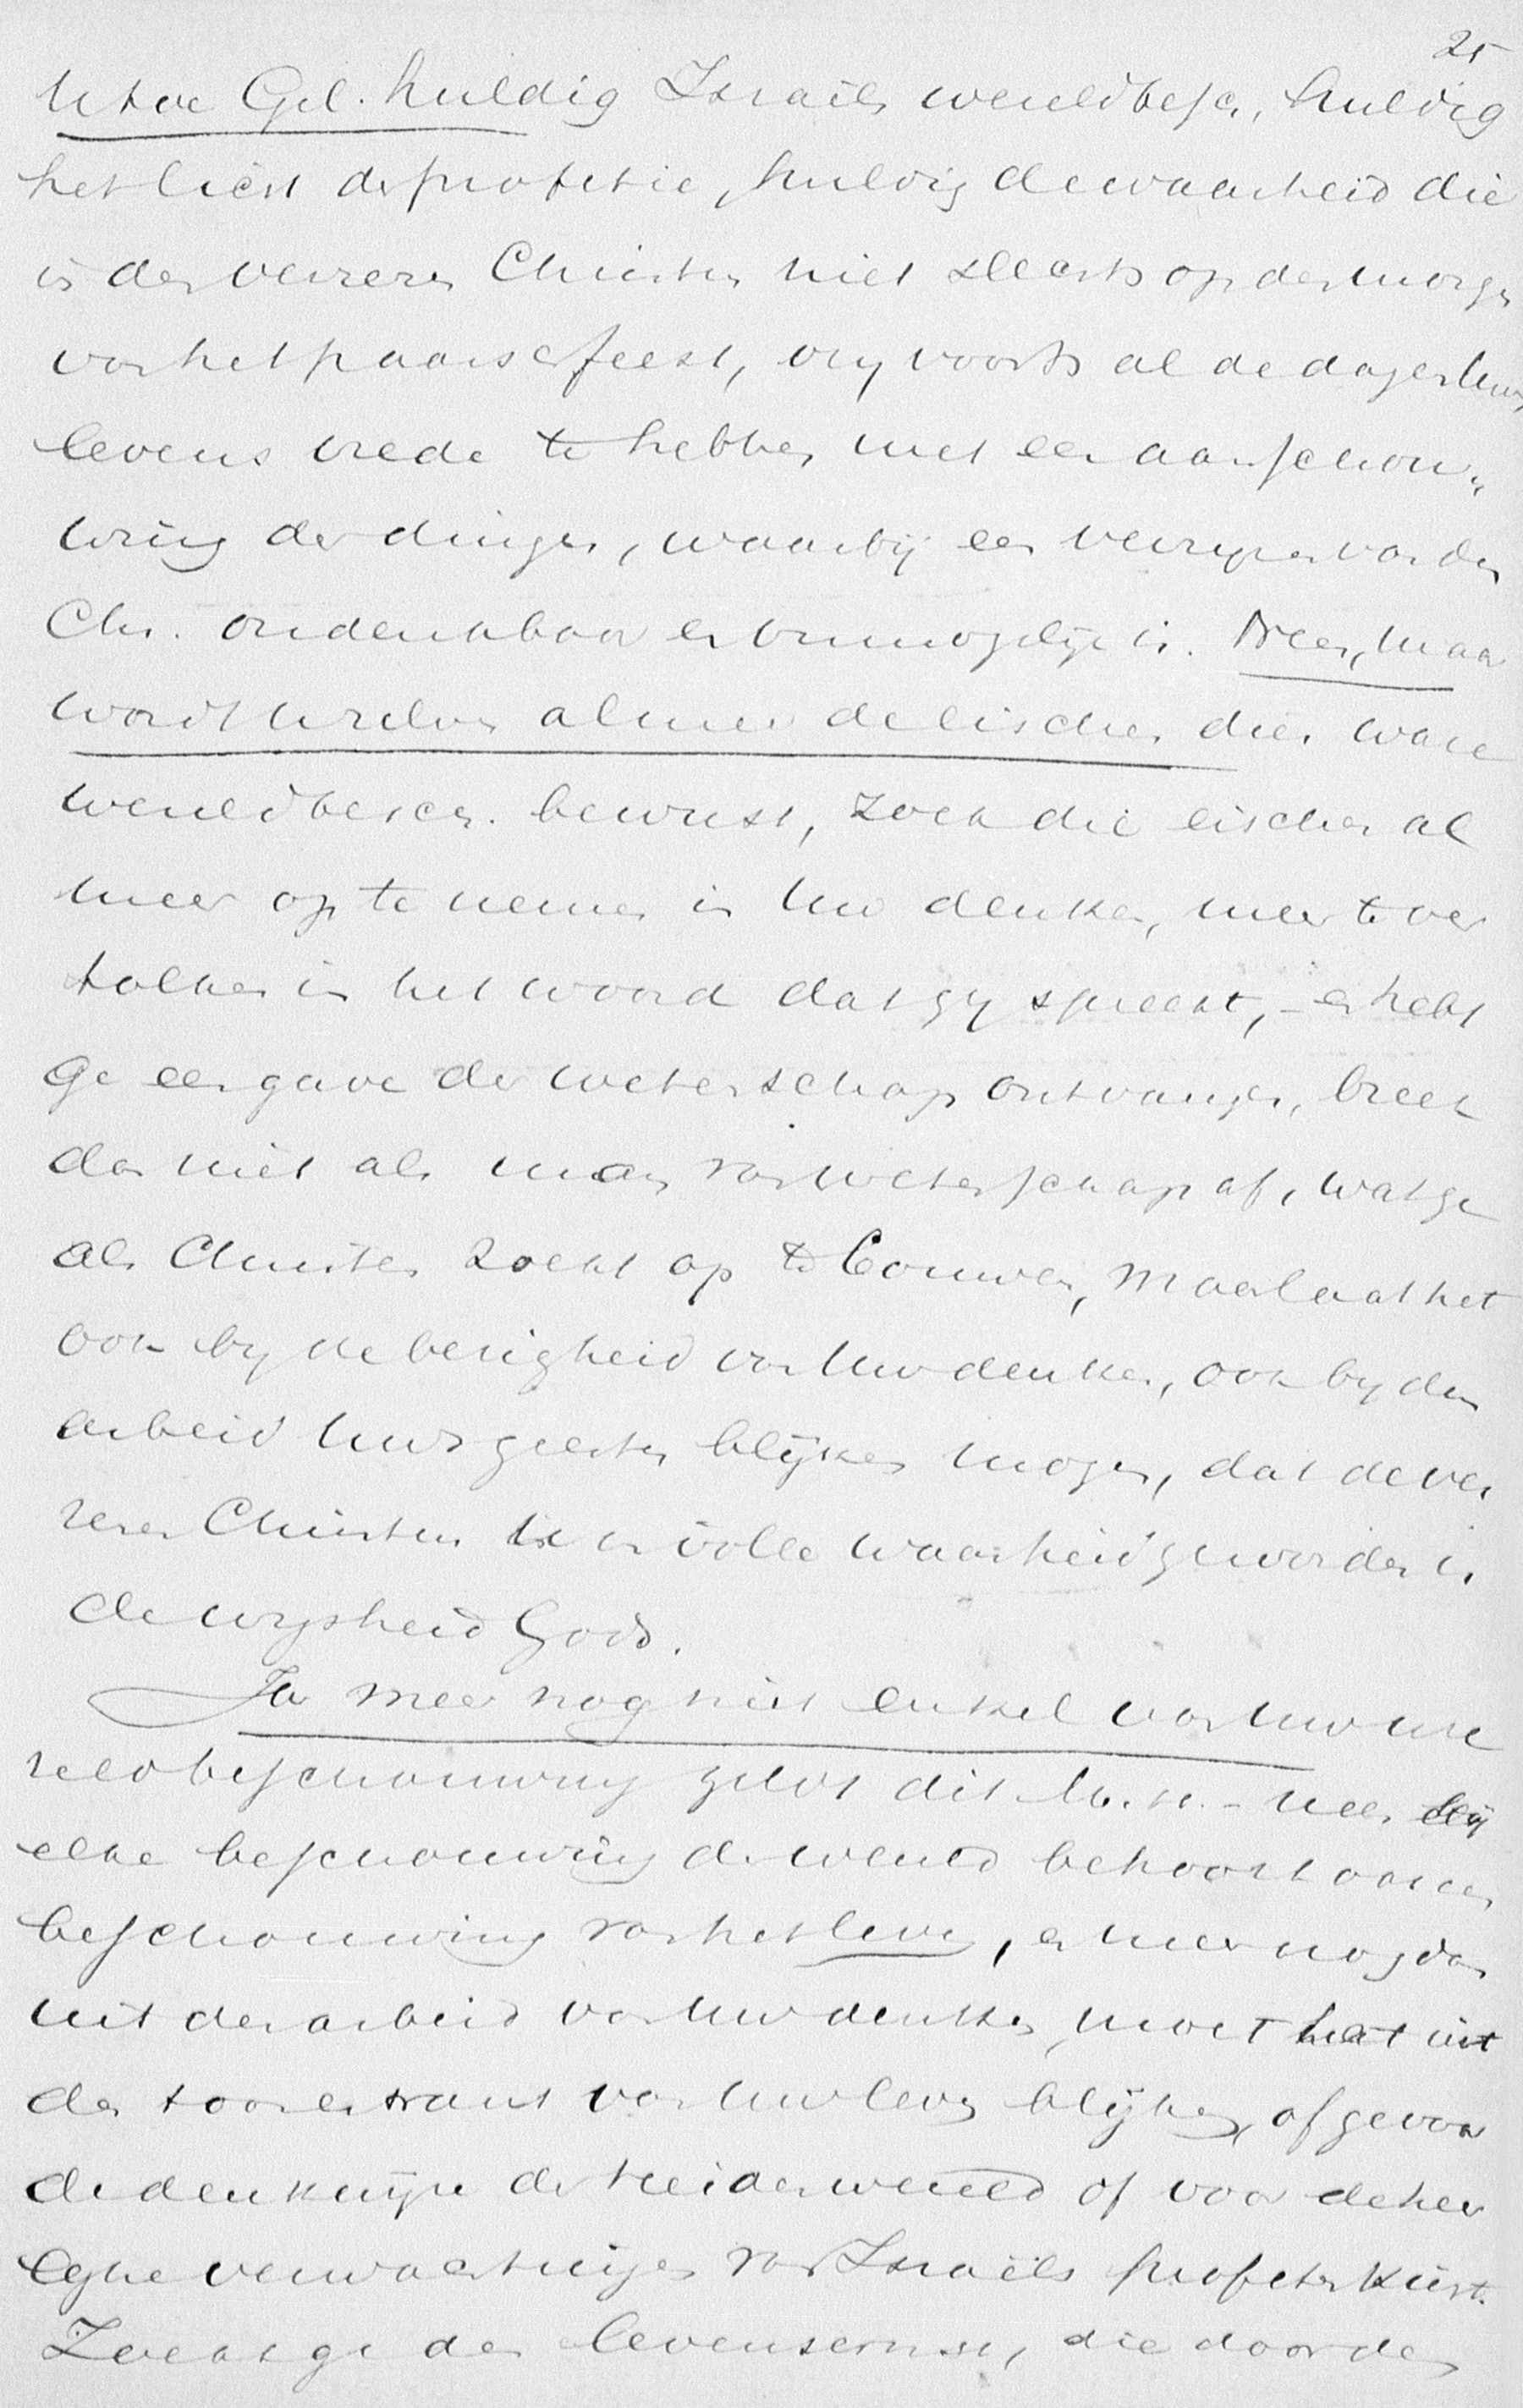 25
Uwe Gel. huldig Israëls wereldbesch, huldig
het licht der profetie, huldig de waarheid die
is den verrezen Christus niet slechts op den morgen
van het paaschfeest, om voorts al de dagen Uws
levens vrede te hebben met een aanschou„
wing der dingen, waarbij een verrijzen van den
Chr. ondenkbaar en onmogelijk is. Neen, maar
wordt U zelven almeer de eischen dier ware
wereldbesch. bewust, zoek die eischen al
meer op te nemen in Uw denken, meer te ver
tolken in het woord dat gy spreekt, – en hebt
Ge een gave der wetenschap ontvangen, breek
dan niet als man van wetenschap af, wat ge
als Christen zoekt op te bouwen, maar laat het
ook by de bezigheid van Uw denken, ook by den
arbeid Uws geestes blijken mogen, dat de ver
rezen Christus U in volle waarheid geworden is
de wysheid Gods.
Ja meer nog niet enkel van Uw we
reldbeschouwing geldt dit M.H. – neen bij
elke beschouwing der wereld behoort ook een
beschouwing van het leven, en meer nog dan
uit den arbeid van Uw denken, moet het uit
den toon en trant van Uw leven blijken, of ge voor
de denkwijze der heidenwereld of voor de heer
lyke verwachtingen van Israëls profeten kiest.
Zoekt ge den levensernst, die door den